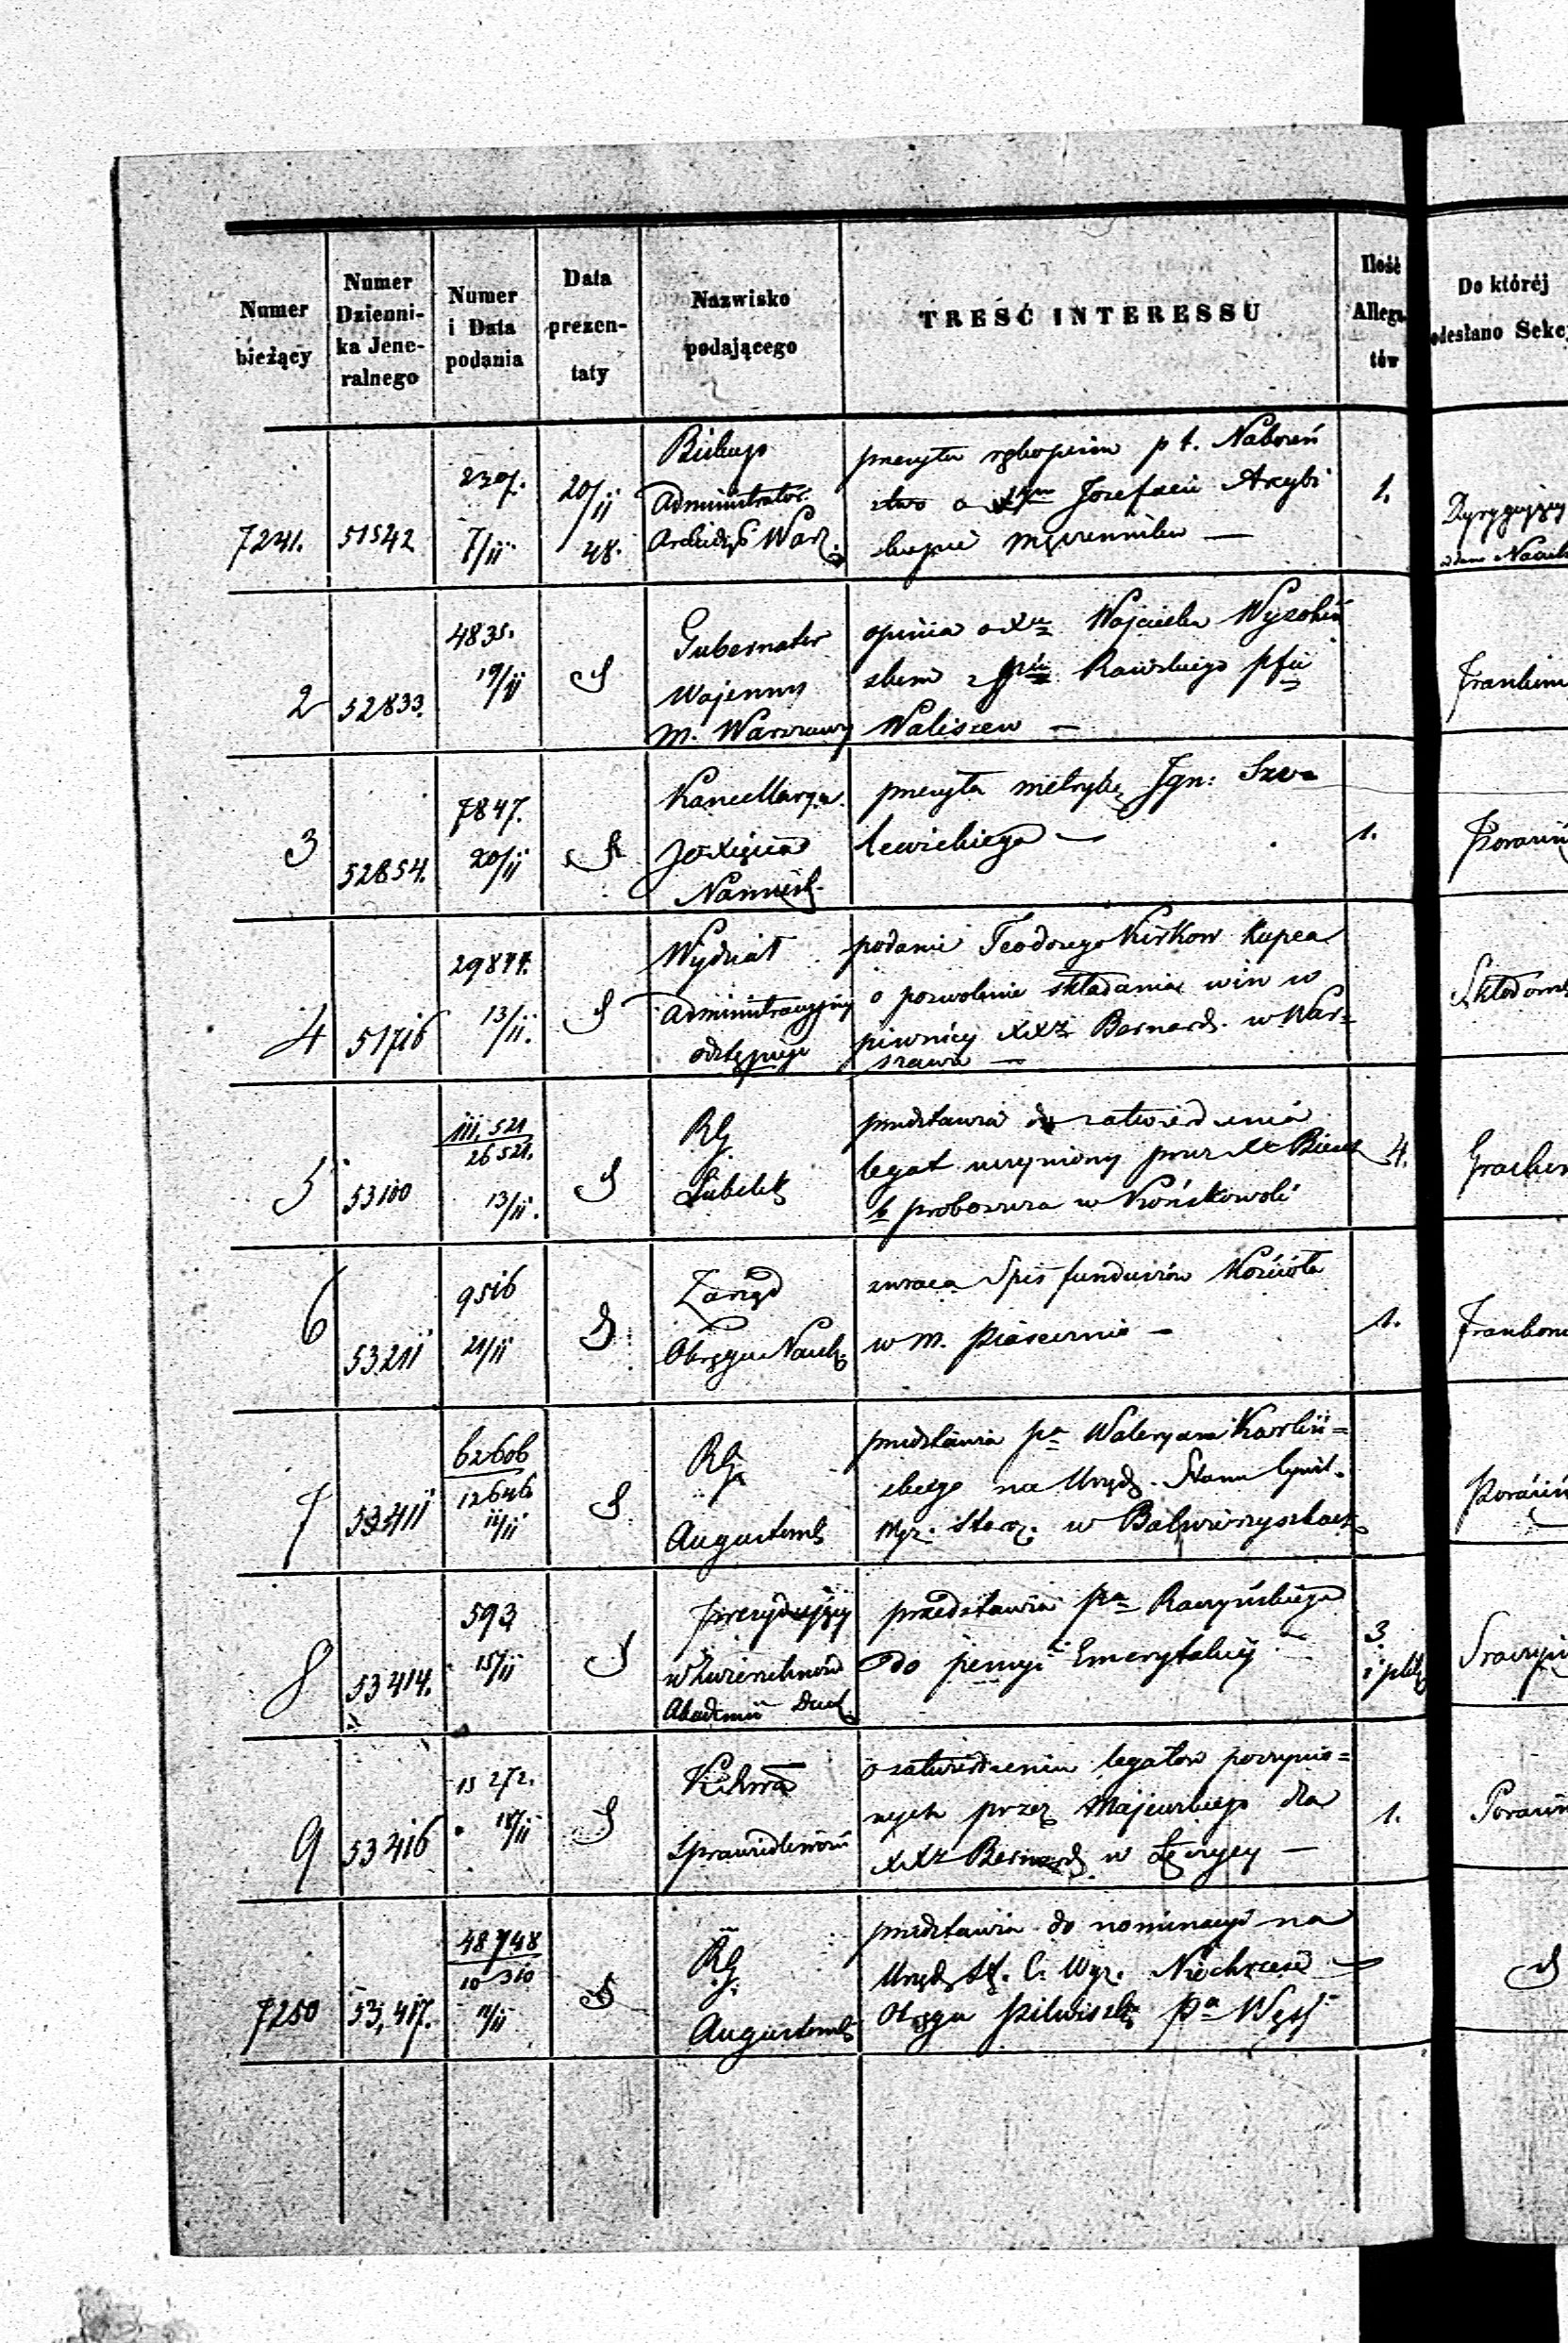 Numer bieżący
Numer Dzienni- ka Jene- ralnego
Numer i Data podania
Data prezen- taty
Nazwisko podającego
TREŚĆ INTERESSU
Ilość Allega tów
Do któréj odesłano Sekc
7241. 51542
2307.
7/11
20/11
48.
Biskup
Administrator
Archidyó Warz.
przesyła rękopism p t. Nabozeń
stwo o Stym Jozefacie Arcybi
skupie męczenniku —
1.
2 52833.
4835.
19/11
Gubernator
Wojenny
M. Warszawy
opinia o Xu Wojciechu Wyzokiń
skim z Rawskiego pfii
Waliszew —
3 52854.
7847.
20/11
Kancellarya
JO Xięcia
Namiest.
przesyła metrykę Ign: Szwa
lewickiego —
1.
4 51716
29877.
13/11.
Wydział
Administracyjny
odstępuje
podanie Teodorego Kirkow kupca
o pozwolenie składania win w
piwnicy XXz Bernard. w War=
szawie —
5 53100
III. 521
26521.
13/11.
RG.
Lubelsk
przedstawia do zatwierdzenia
legat uczyniony przez Xa
b proboszcza w Końskowoli
4.
6 53211
9516
21/11
Zarząd
Okręgu Nauk.
zwraca Spis funduszów Kościoła
w M. Piasecznie —
1.
7 53411
62606
12646
11/11
RG.
Augustows
przedstawia pa Waleryana Karliń=
skiego na Urzęd. Stanu Cywil.
Wyz. Starz. w Balwierzyszkach
8 53414.
593
15/11
Prezydujący
w Zwierzchności
Akademii Duch.
przedstawia pa Raczyńskiego
do pensyi Emerytalnéj —
3
i plik
9 53416
15272.
18/11
KRwa
Sprawiedliwości
o zatwierdzeniu legatów poczynio=
nych przez Majewskiego dla
XXz Bernard w Łęczycy —
1.
7250 53,417.
48748
10310
11/11
RG.
Augustows
przedstawia do nominacyi na
Urzęd. St. C. Wyz. Niechrześć —
Okręgu Pilwiszk pa